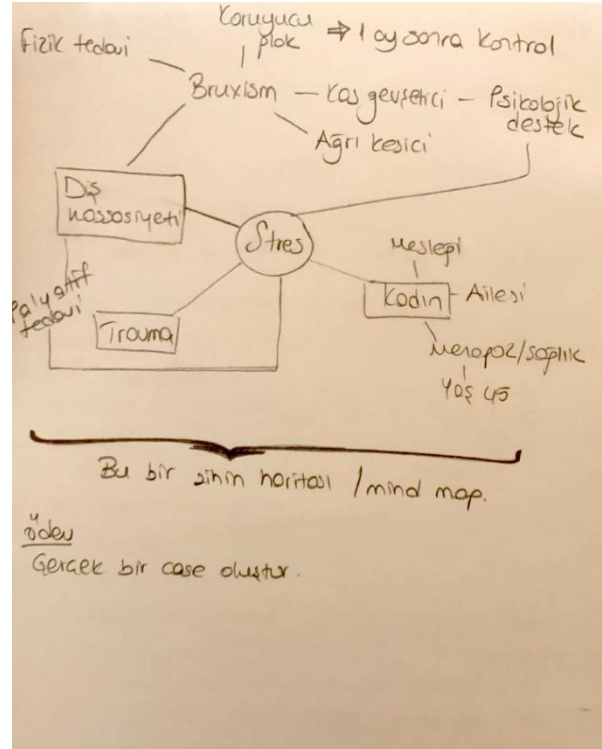 Koruyucu
plak ⇒ 1 ay sonra kontrol
Fizik tedavi
Bruxism — Kas gevşetici — Psikolojik
destek
Ağrı kesici
Diş
hassasiyeti
Stres
Mesleği
Kadın - Ailesi
Palyatif
tedavi
Trauma
Menapoz/sağlık
Yaş 45
Bu bir zihin haritası / mind map.
ödev
Gerçek bir case oluştur.